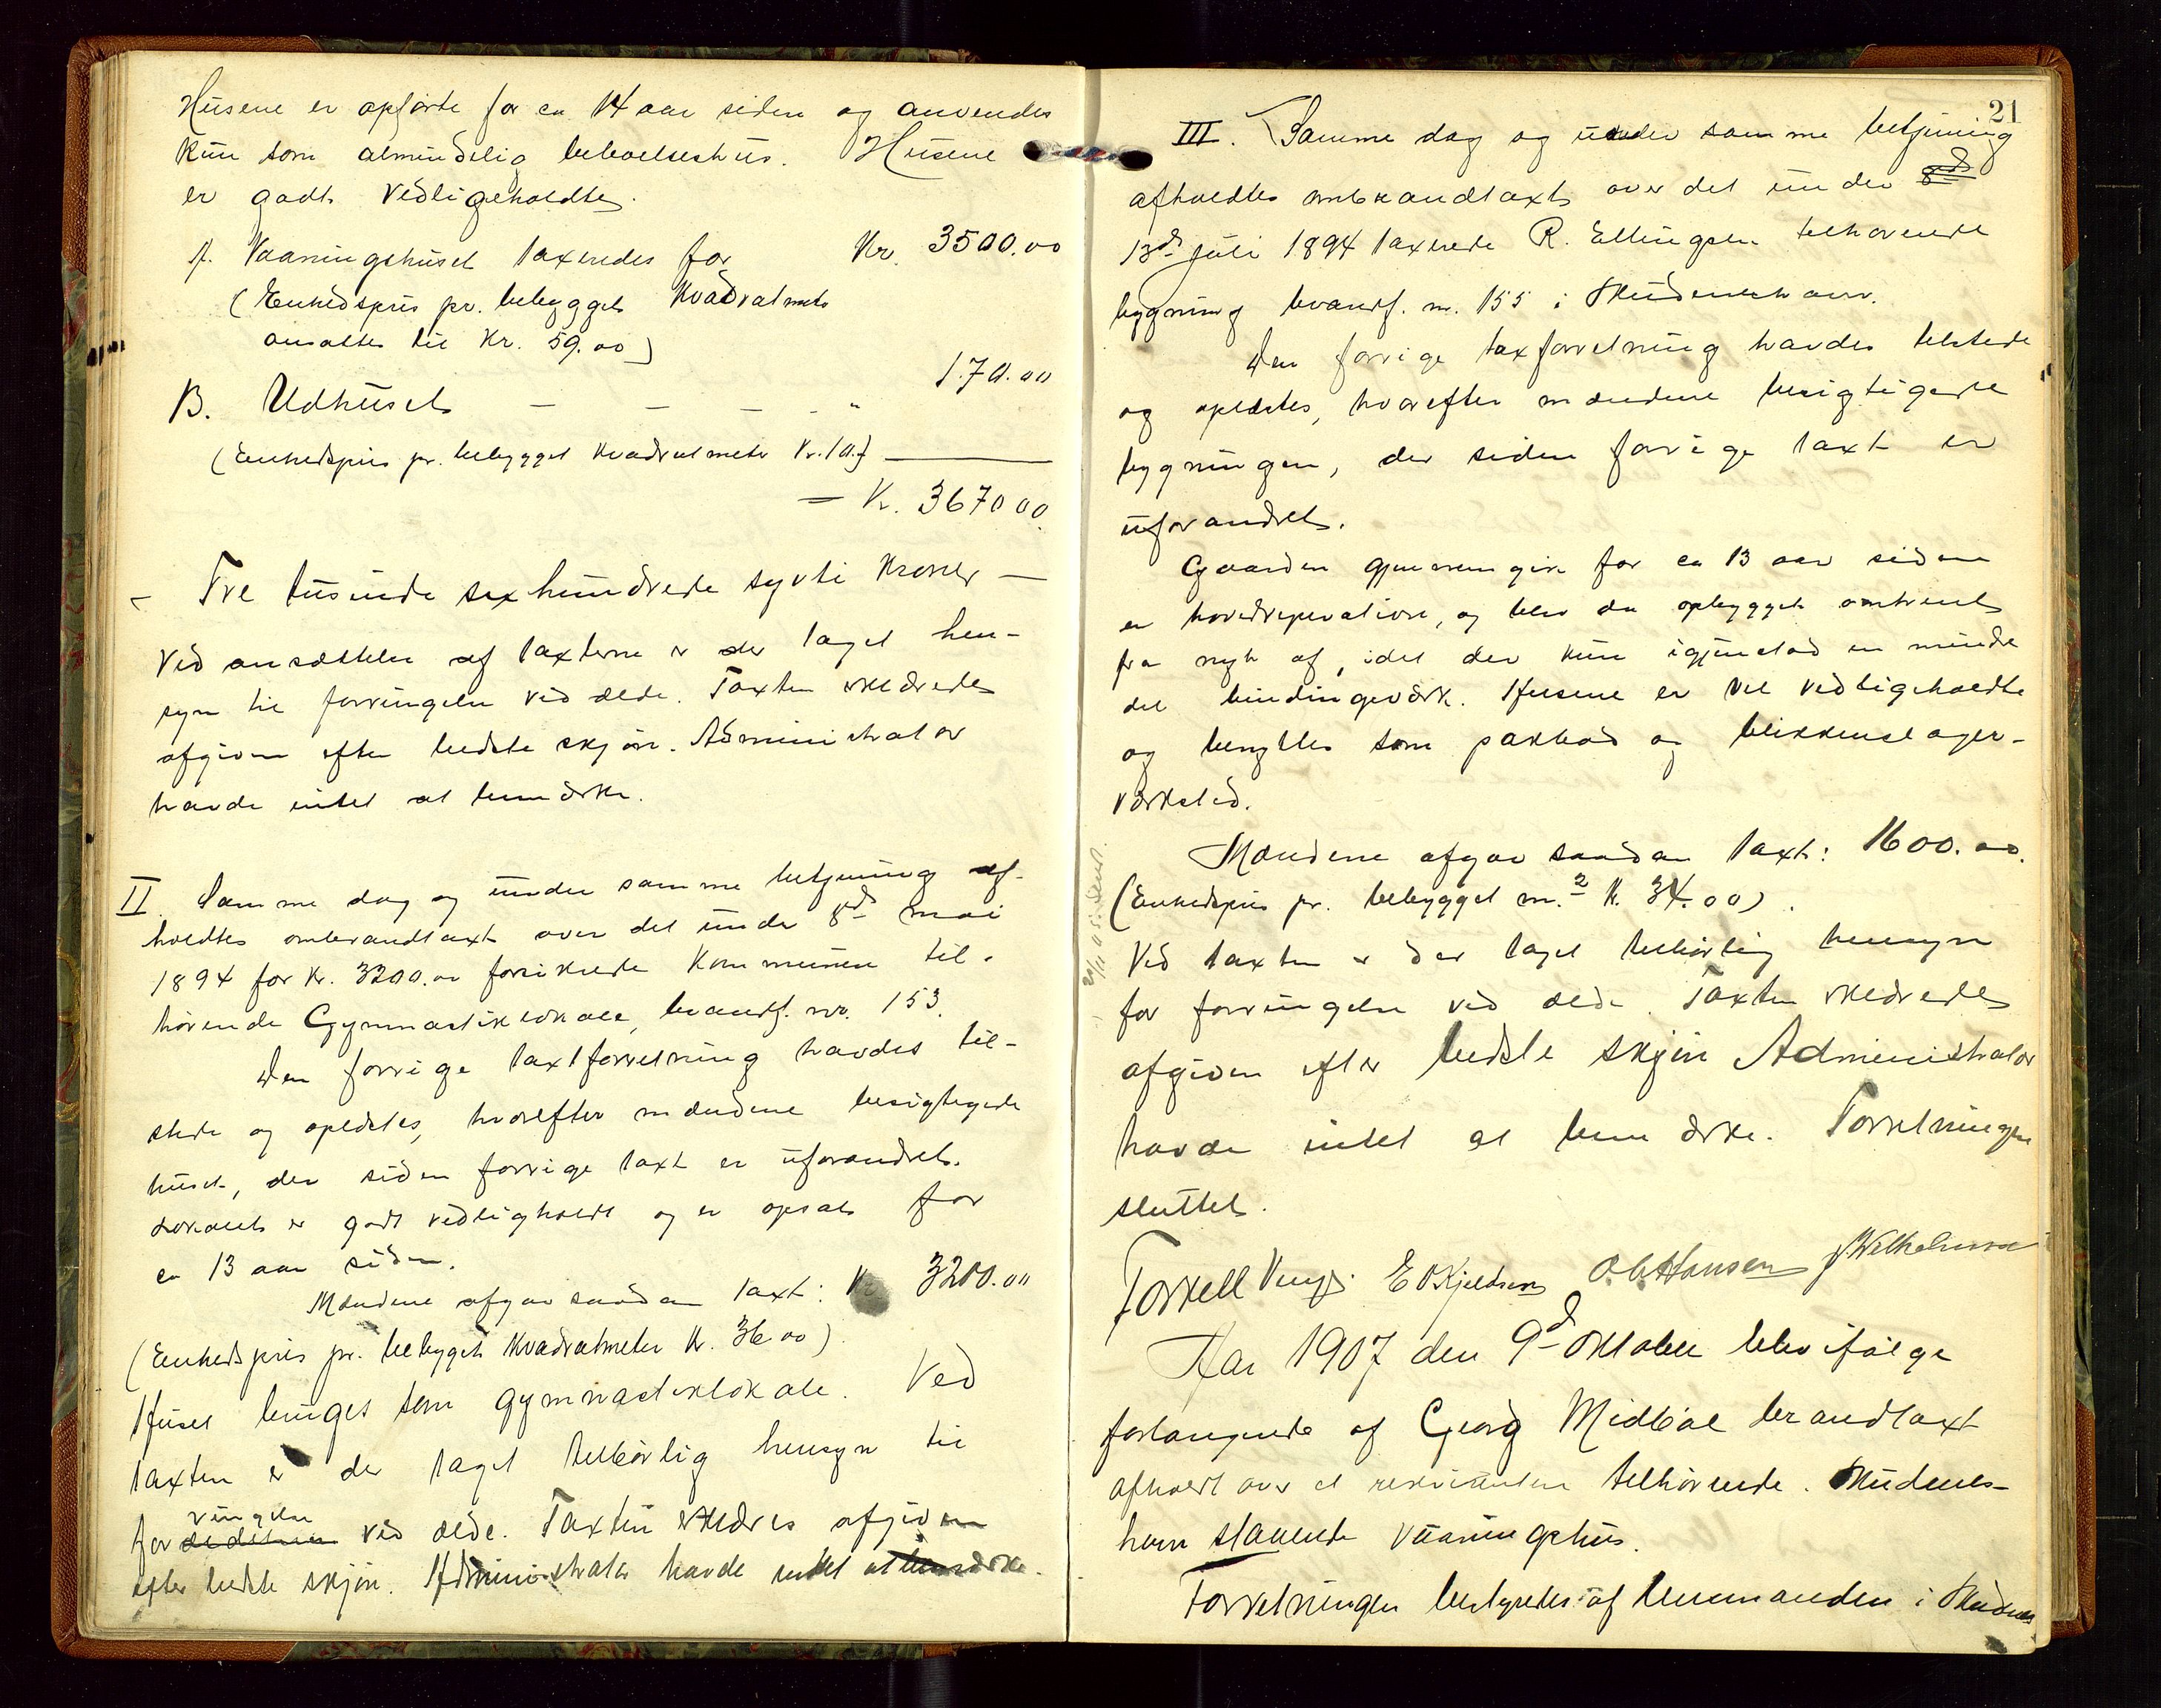 Husene er opførte for ca 14 aar siden og anvendes
kun som almindelig beboelseshus. Husene
er godt vedligeholdte.
A. Vaaningshuset taxeredes for Kr. 3500.00
(Enhedspris pr. bebygget kvadratmeter
ansattes til Kr. 59.00)
B. Udhuset — — — - " 170.00
(Enhedspris pr. bebygget kvadratmeter Kr. 10.)
— Kr. 3670 00
— Tre tusinde sex hundrede sytti Kroner —
Ved ansættelsen af taxterne er der taget hen-
syn til forringelse ved ælde. Taxten erklæredes
afgiven efter bedste skjøn. Administrator
havde intet at bemærke.
II. Samme dag og under samme betjening af-
holdtes ombrandtaxt over det under 8de mai
1894 for Kr. 3200.00 forsikrede Kommunen til-
hørende Gymnastiklokale, brandf. nr. 153.
Den forrige taxtforretning havdes til-
stede og oplæstes, hvorefter mændene besigtigede
huset, der siden forrige taxt er uforandret.
Lokalet er godt vedligeholdt og er opsat for
ca 13 aar siden.
Mændene afgav saadan taxt: Kr 3200.00
(Enhedspris pr. bebygget kvadratmeter Kr. 36.00)
Huset bruges som gymnastiklokale. Ved
taxten er der taget tilbørlig hensyn til
ringelse
for ved ælde. Taxten erklæres afgiven
efter bedste skjøn. Administrator havde intet at bemærke.
21
III. Samme dag og under samme betjening
afholdtes ombrandtaxt over det under 8de
13de juli 1894 taxerede R. Ellingsen tilhørende
bygning brandf. nr. 155 i Skudeneshavn.
Den forrige taxforretning havdes tilstede
og oplæstes, hvorefter mændene besigtigede
bygningen, der siden forrige taxt er
uforandret.
Gaarden gjennemgik for ca 13 aar siden
en hovedreperation, og blev da opbygget omtrent
fra nyt af, idet der kun igjenstod en mindre
del bindingsværk. Husene er vel vedligeholdte
og benyttes som pakbod og blikkenslager-
værksted.
Mændene afgav saadan taxt: 1600.00.
(Enhedspris pr. bebygget m.2 K. 34.00).
Ved taxten er der taget tilbørlig hensyn
for forringelse ved ælde. Taxten erklæredes
afgiven efter bedste skjøn Administrator
havde intet at bemærke. Forretningen
sluttet.
Torkell E O Kjeldsen O. C. Hansen J Wilhelmsen
Aar 1907 den 9d Oktober blev ifølge
forlangende af Georg Midbøe brandtaxt
afholdt over et rekvirenten tilhørende i Skudenes-
havn staaende vaaningshus.
Forretningen bestyredes af lensmanden i Skudenes